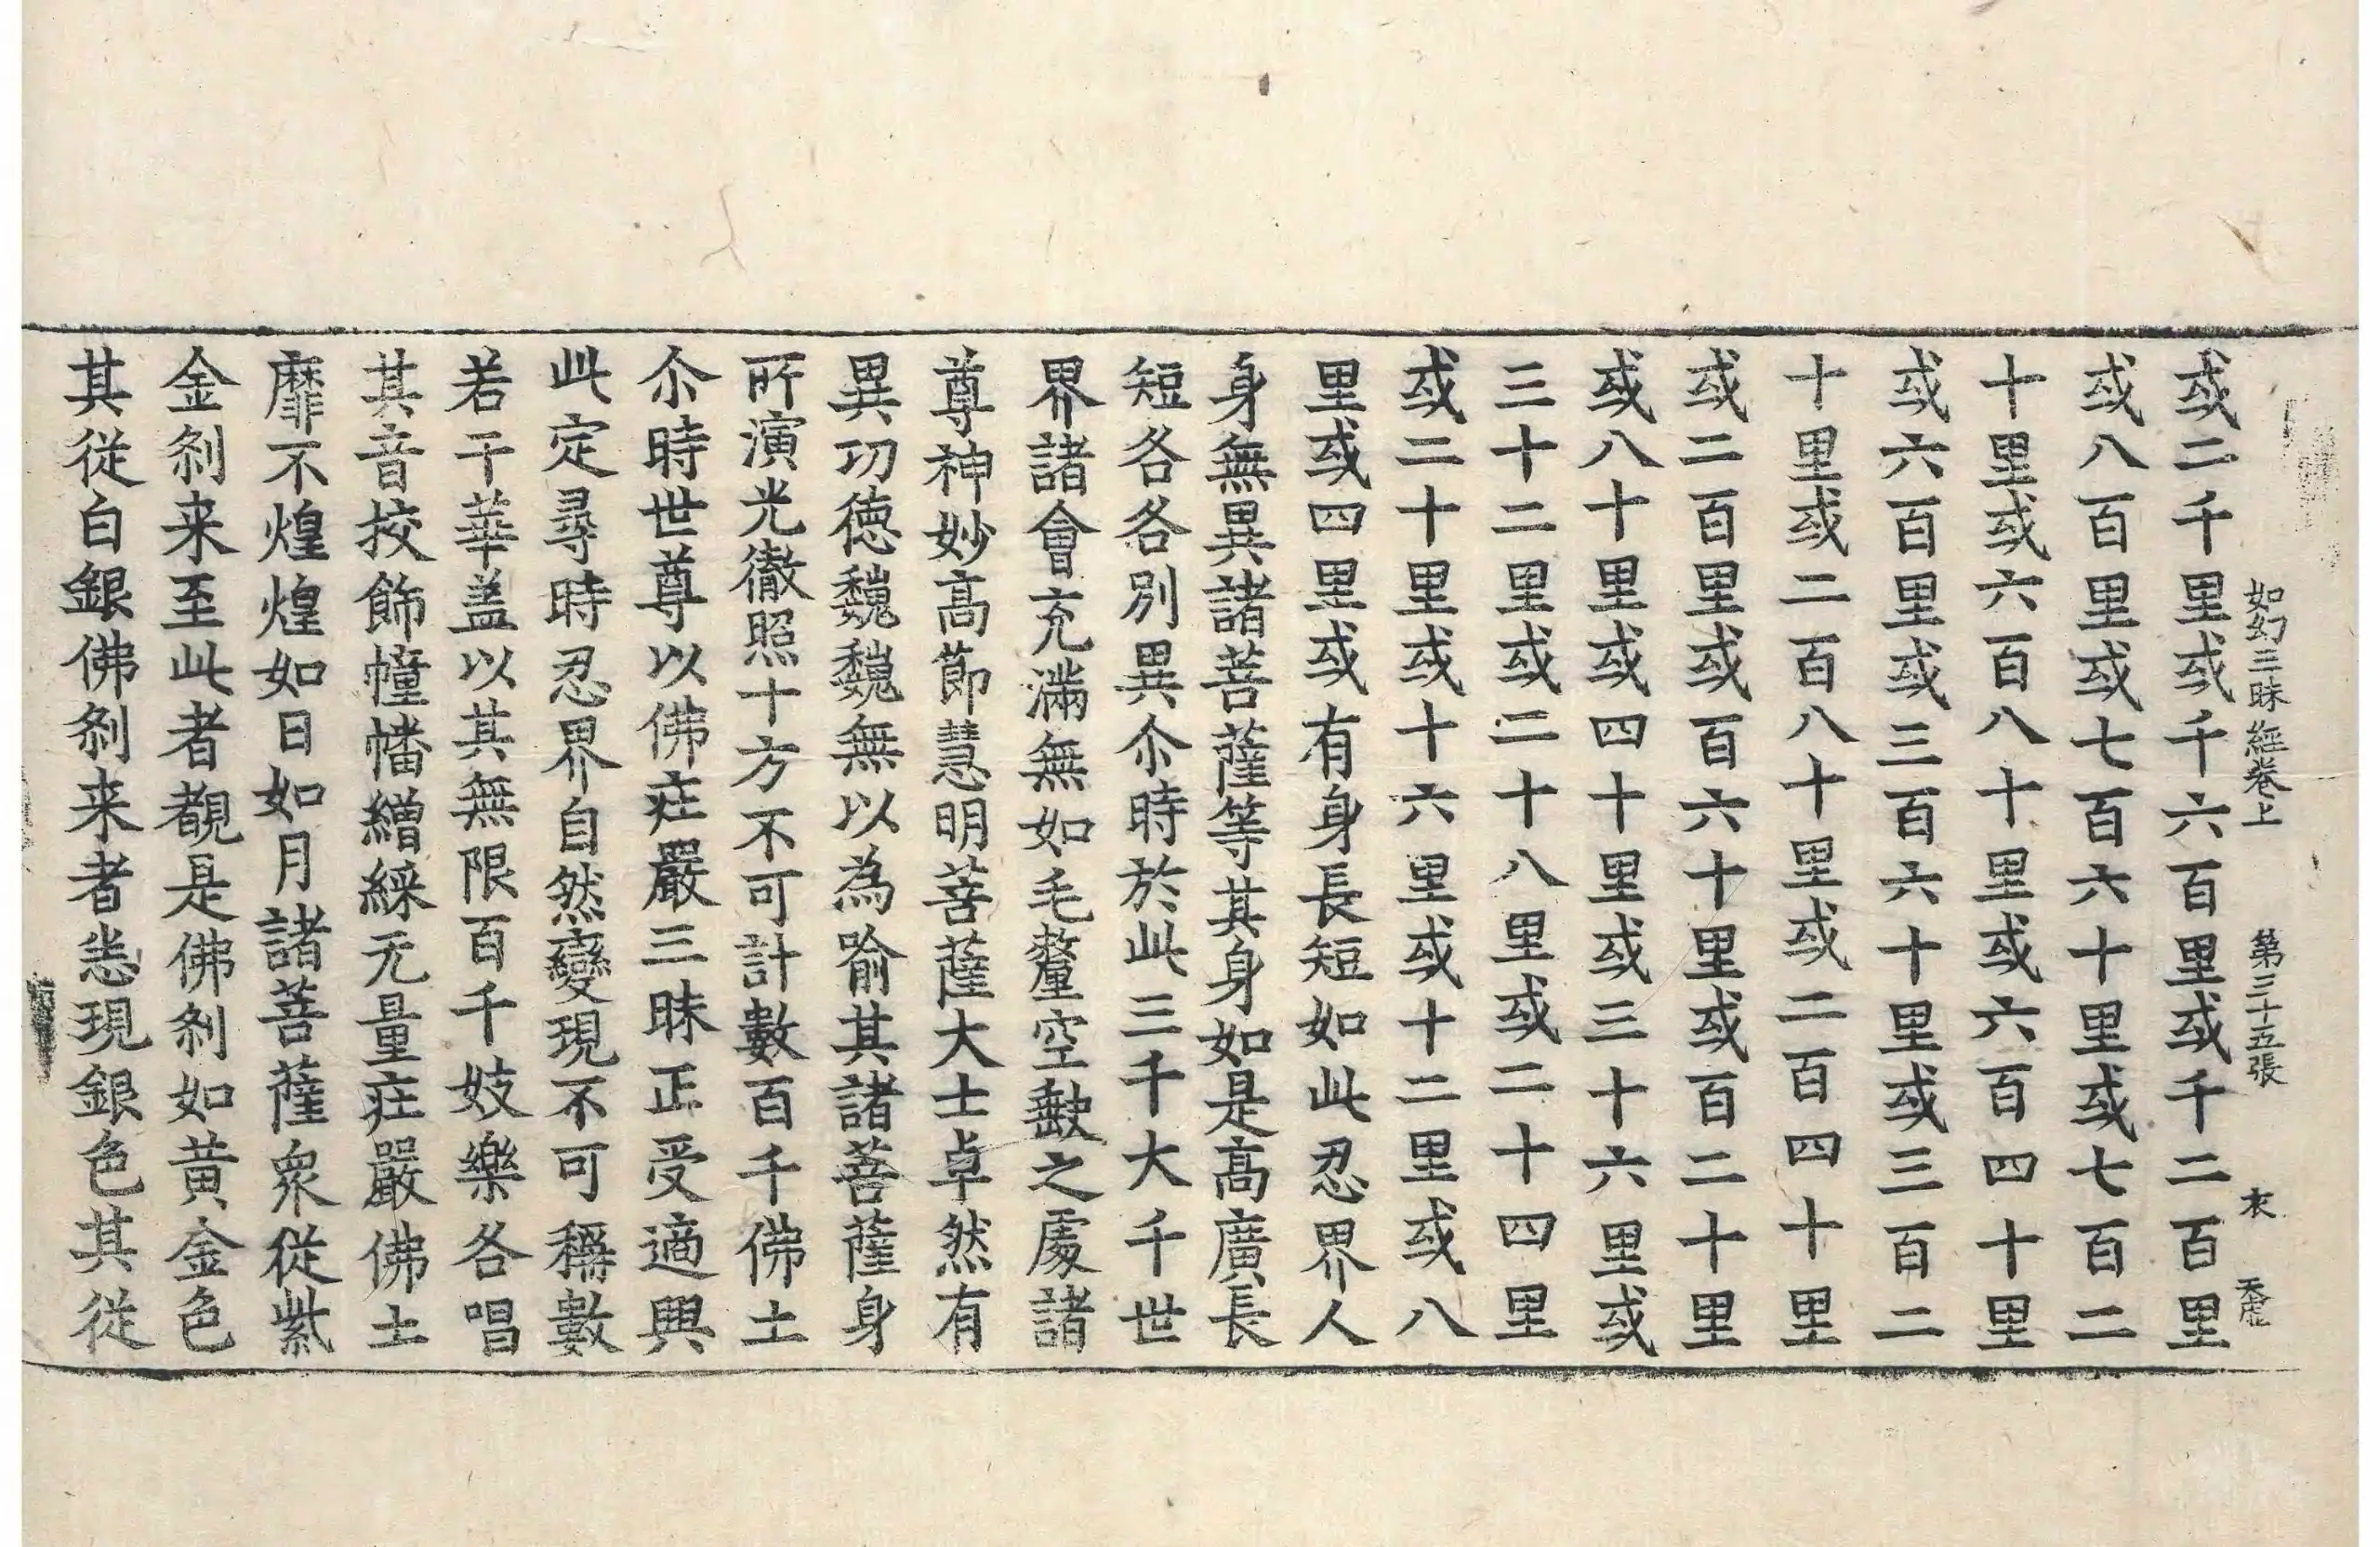 如幻三昧經卷上　第三十五張　衣　天虎
或二千里或千六百里或千二百里
或八百里或七百六十里或七百二
十里或六百八十里或六百四十里
或六百里或三百六十里或三百二
十里或二百八十里或二百四十里
或二百里或百六十里或百二十里
或八十里或四十里或三十六里或
三十二里或二十八里或二十四里
或二十里或十六里或十二里或八
里或四里或有身長短如此忍界人
身無異諸菩薩等其身如是高廣長
短各各別異尒時於此三千大千世
界諸會充滿無如毛氂空歃之處諸
尊神妙高節慧明菩薩大士卓然有
異功德巍巍無以為喻其諸菩薩身
所演光徹照十方不可計數百千佛土
尒時世尊以佛疰嚴三昧正受適興
此定尋時忍界自然變現不可稱數
若干華盖以其無限百千妓樂各唱
其音挍飾幢幡繒綵无量疰嚴佛土
靡不煌煌如日如月諸菩薩衆從紫
金剎来至此者覩是佛剎如黄金色
其從白銀佛剎来者悉現銀色其從